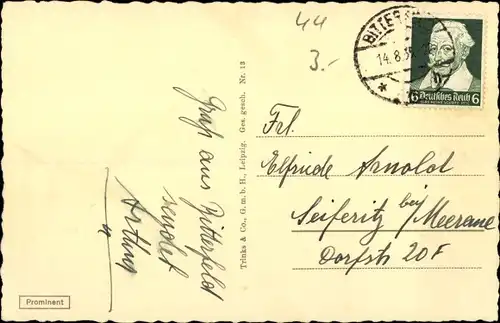 44
3.-
BITTERF
14.8.35
6 Deutsches Reich 6
Gruß aus Bitterfeld
sendet
Arthur
Trinks & Co., G. m. b. H., Leipzig. Ges. gesch. Nr. 13
Frl.
Elfriede Arnoldt
Seiferitz bei
Meerane
Dorfstr 20F
Prominent